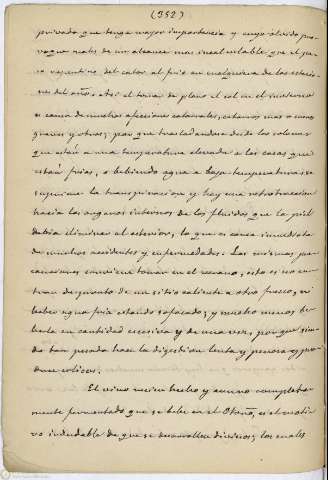 (352)
privado que tenga mayor importancia y cuyo olvido pro-
voque males de un alcance mas incalculable que el pa-
so repentino del calor al frio en cualquiera de las estacio-
nes del año. Asi el tomar de plano el sol en el invierno
es causa de muchas afecciones catarrales, catarros mas o menos
graves y otros; por que trasladandose desde las solanas
que estan a una temperatura elevada a las casas que
estan frias, o bebiendo agua a baja temperatura se
suprime la transpiracion y hay una retrotraccion
hacia los órganos internos de los fluidos que la piel
debia eliminar al esterior, lo que es causa inmediata
de muchos accidentes y enfermedades. Las mismas pre-
cauciones conviene tomar en el verano; esto es no en-
trar de pronto de un sitio caliente a otro fresco, ni
beber agua fria estando sofocado; y mucho menos be-
berla en cantidad escesiva y de una vez, por que sien-
do tan pesada hace la digestion lenta y penosa y pro-
duce cólicos.
El vino recien hecho y aun no completa-
mente fermentado que se bebe en el Otoño, es el moti-
vo indudable de que se desarrollen diarreas; los cuales